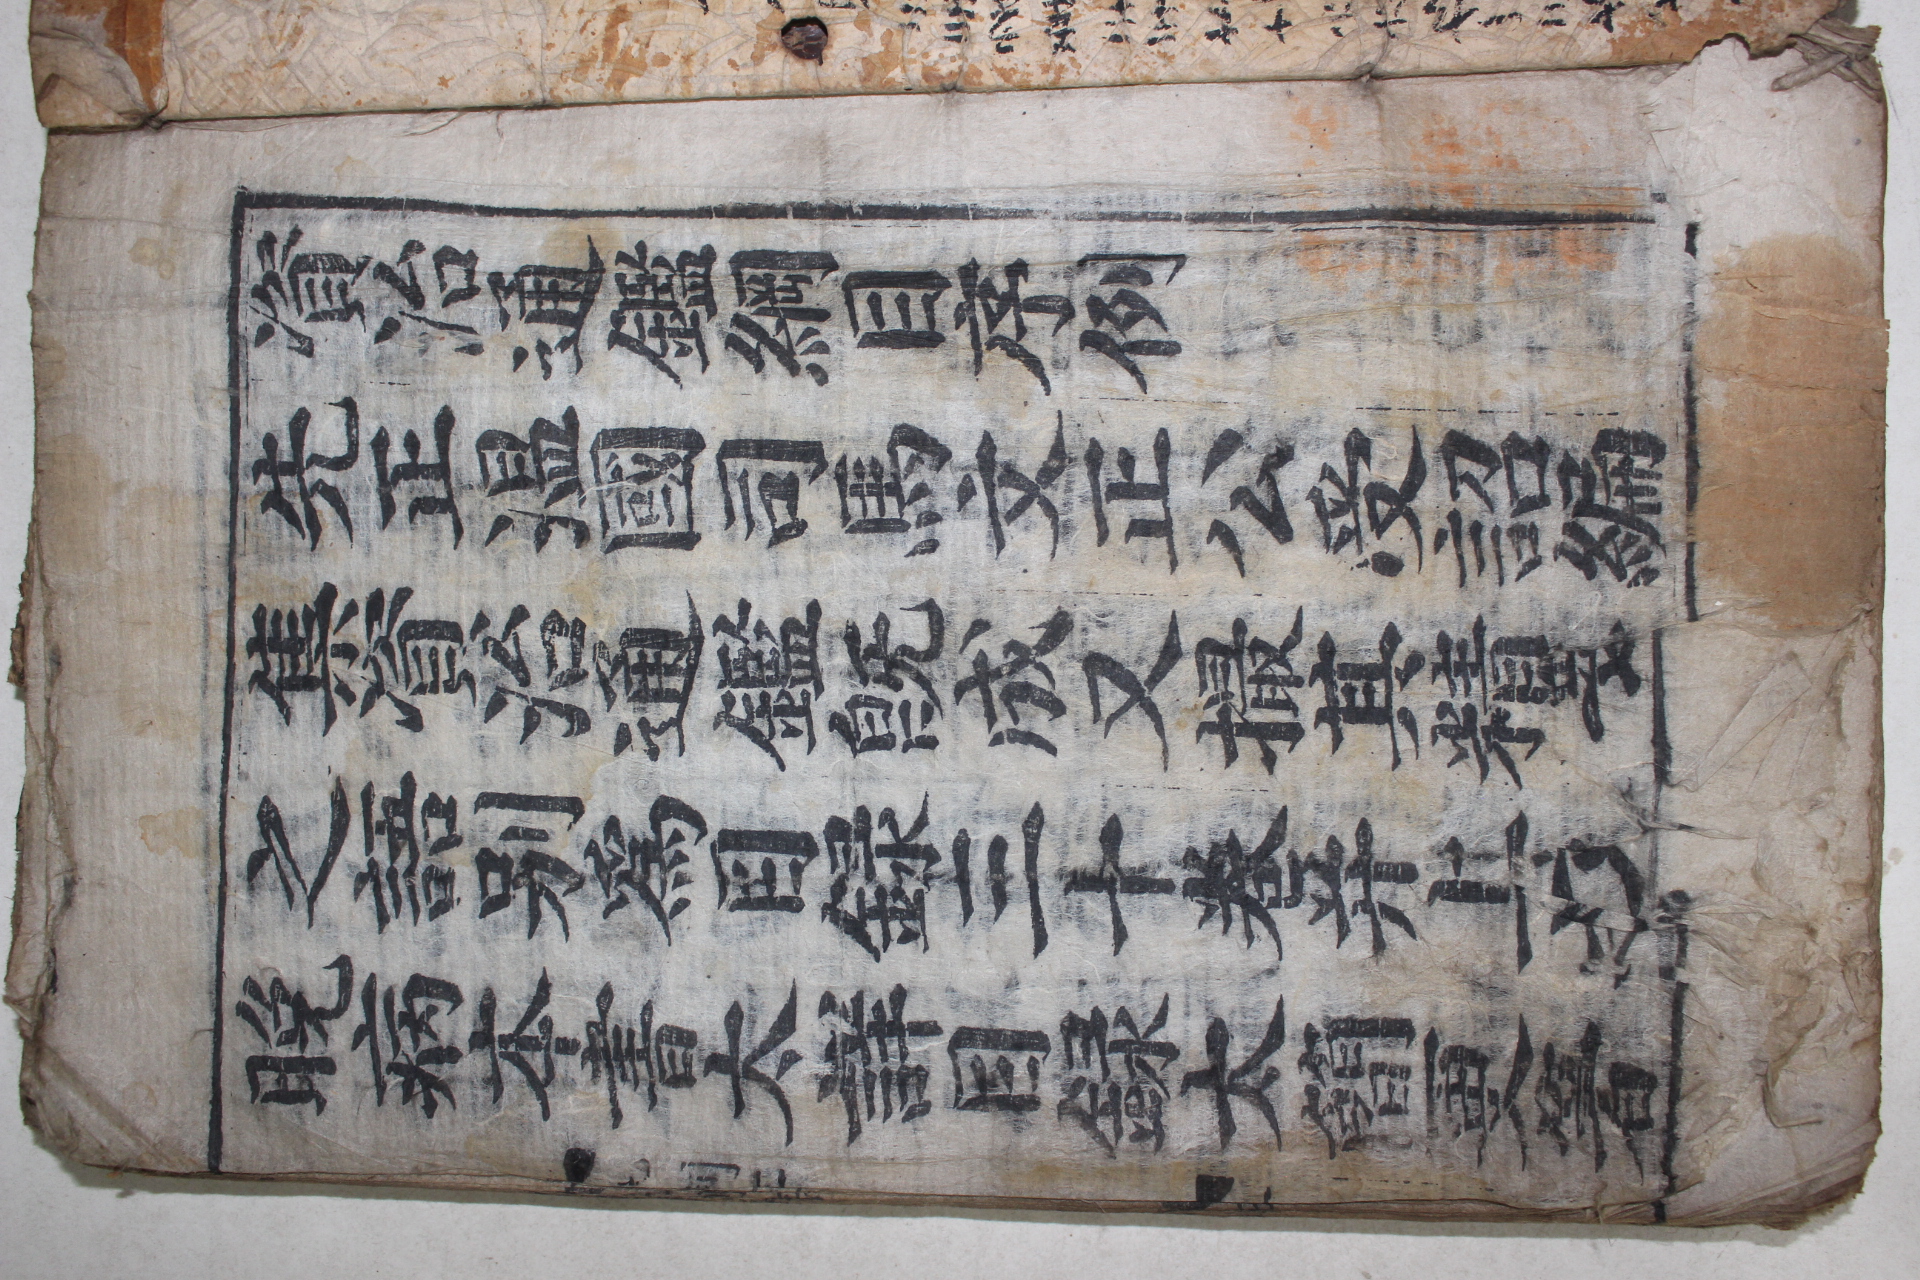 資治通鑑綱目序例
先正温國司馬文正公受詔編
集資治通鑑旣成又撮其精
之語别爲目録三十卷并上
晩病本書太詳目録太簡更著